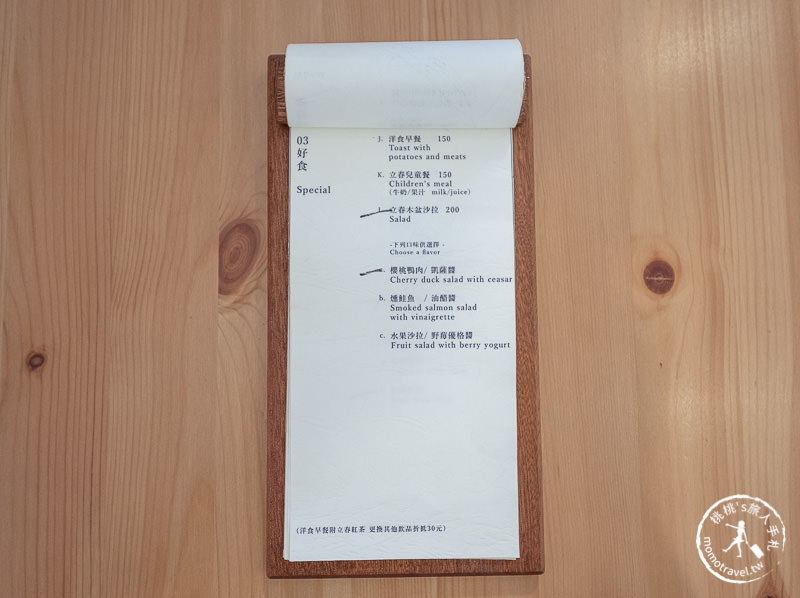 03
好
食
Special
J. 洋食早餐 150
Toast with
potatoes and meats
K. 立春兒童餐 150
Children's meal
(牛奶/果汁 milk/juice)
立春木盆沙拉 200
Salad
-下列口味供選擇-
Choose a flavor
櫻桃鴨肉/ 凱薩醬
Cherry duck salad with ceasar
b. 燻鮭魚 / 油醋醬
Smoked salmon salad
with vinaigrette
c. 水果沙拉/ 野莓優格醬
Fruit salad with berry yogurt
(洋食早餐附立春紅茶 更換其他飲品折抵30元)
桃桃's旅人手札
momotravel.tw